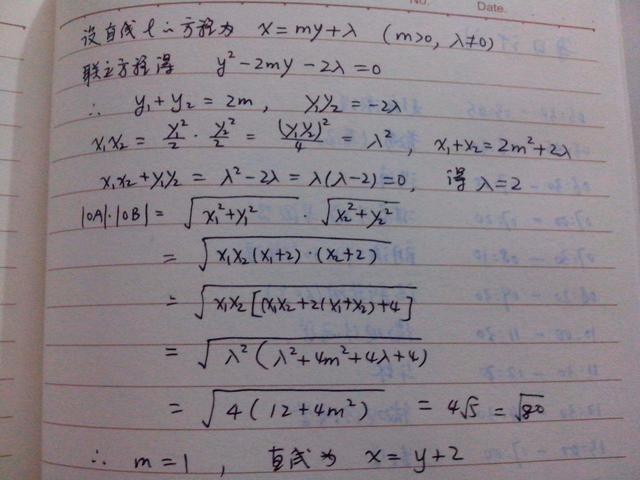 No.
Date.
设直线l∴方程为 x=my+λ (m>0, λ≠0)
联立方程得 y²-2my-2λ=0
∴ y₁+y₂=2m, y₁y₂=-2λ
x₁x₂ = y₁²/2 · y₂²/2 = (y₁y₂)²/4 = λ², x₁+x₂=2m²+2λ
x₁x₂+y₁y₂ = λ²-2λ = λ(λ-2)=0, 得 λ=2
|OA|·|OB| = √(x₁²+y₁²) · √(x₂²+y₂²)
= √(x₁x₂(x₁+2)·(x₂+2))
= √(x₁x₂[(x₁x₂+2(x₁+x₂)+4])
= √(λ²(λ²+4m²+4λ+4))
= √(4(12+4m²)) = 4√5 = √80
∴ m=1, 直线为 x=y+2